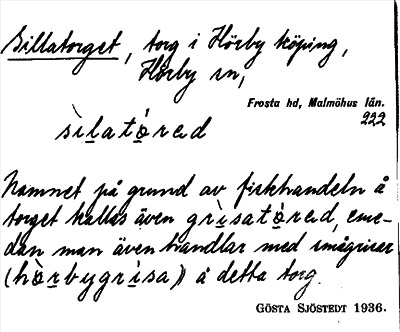 Sillatorget, torg i Hörby köping,
Hörby sn,
Frosta hd, Malmöhus län.
222
sìlató̱rəd
Namnet på grund av fiskhandeln å
torget kallas även grìsató̱rəd, eme-
dan man även handlar med smågriser
(hò̱rbygrìsa) å detta torg.
GÖSTA SJÖSTEDT 1936.